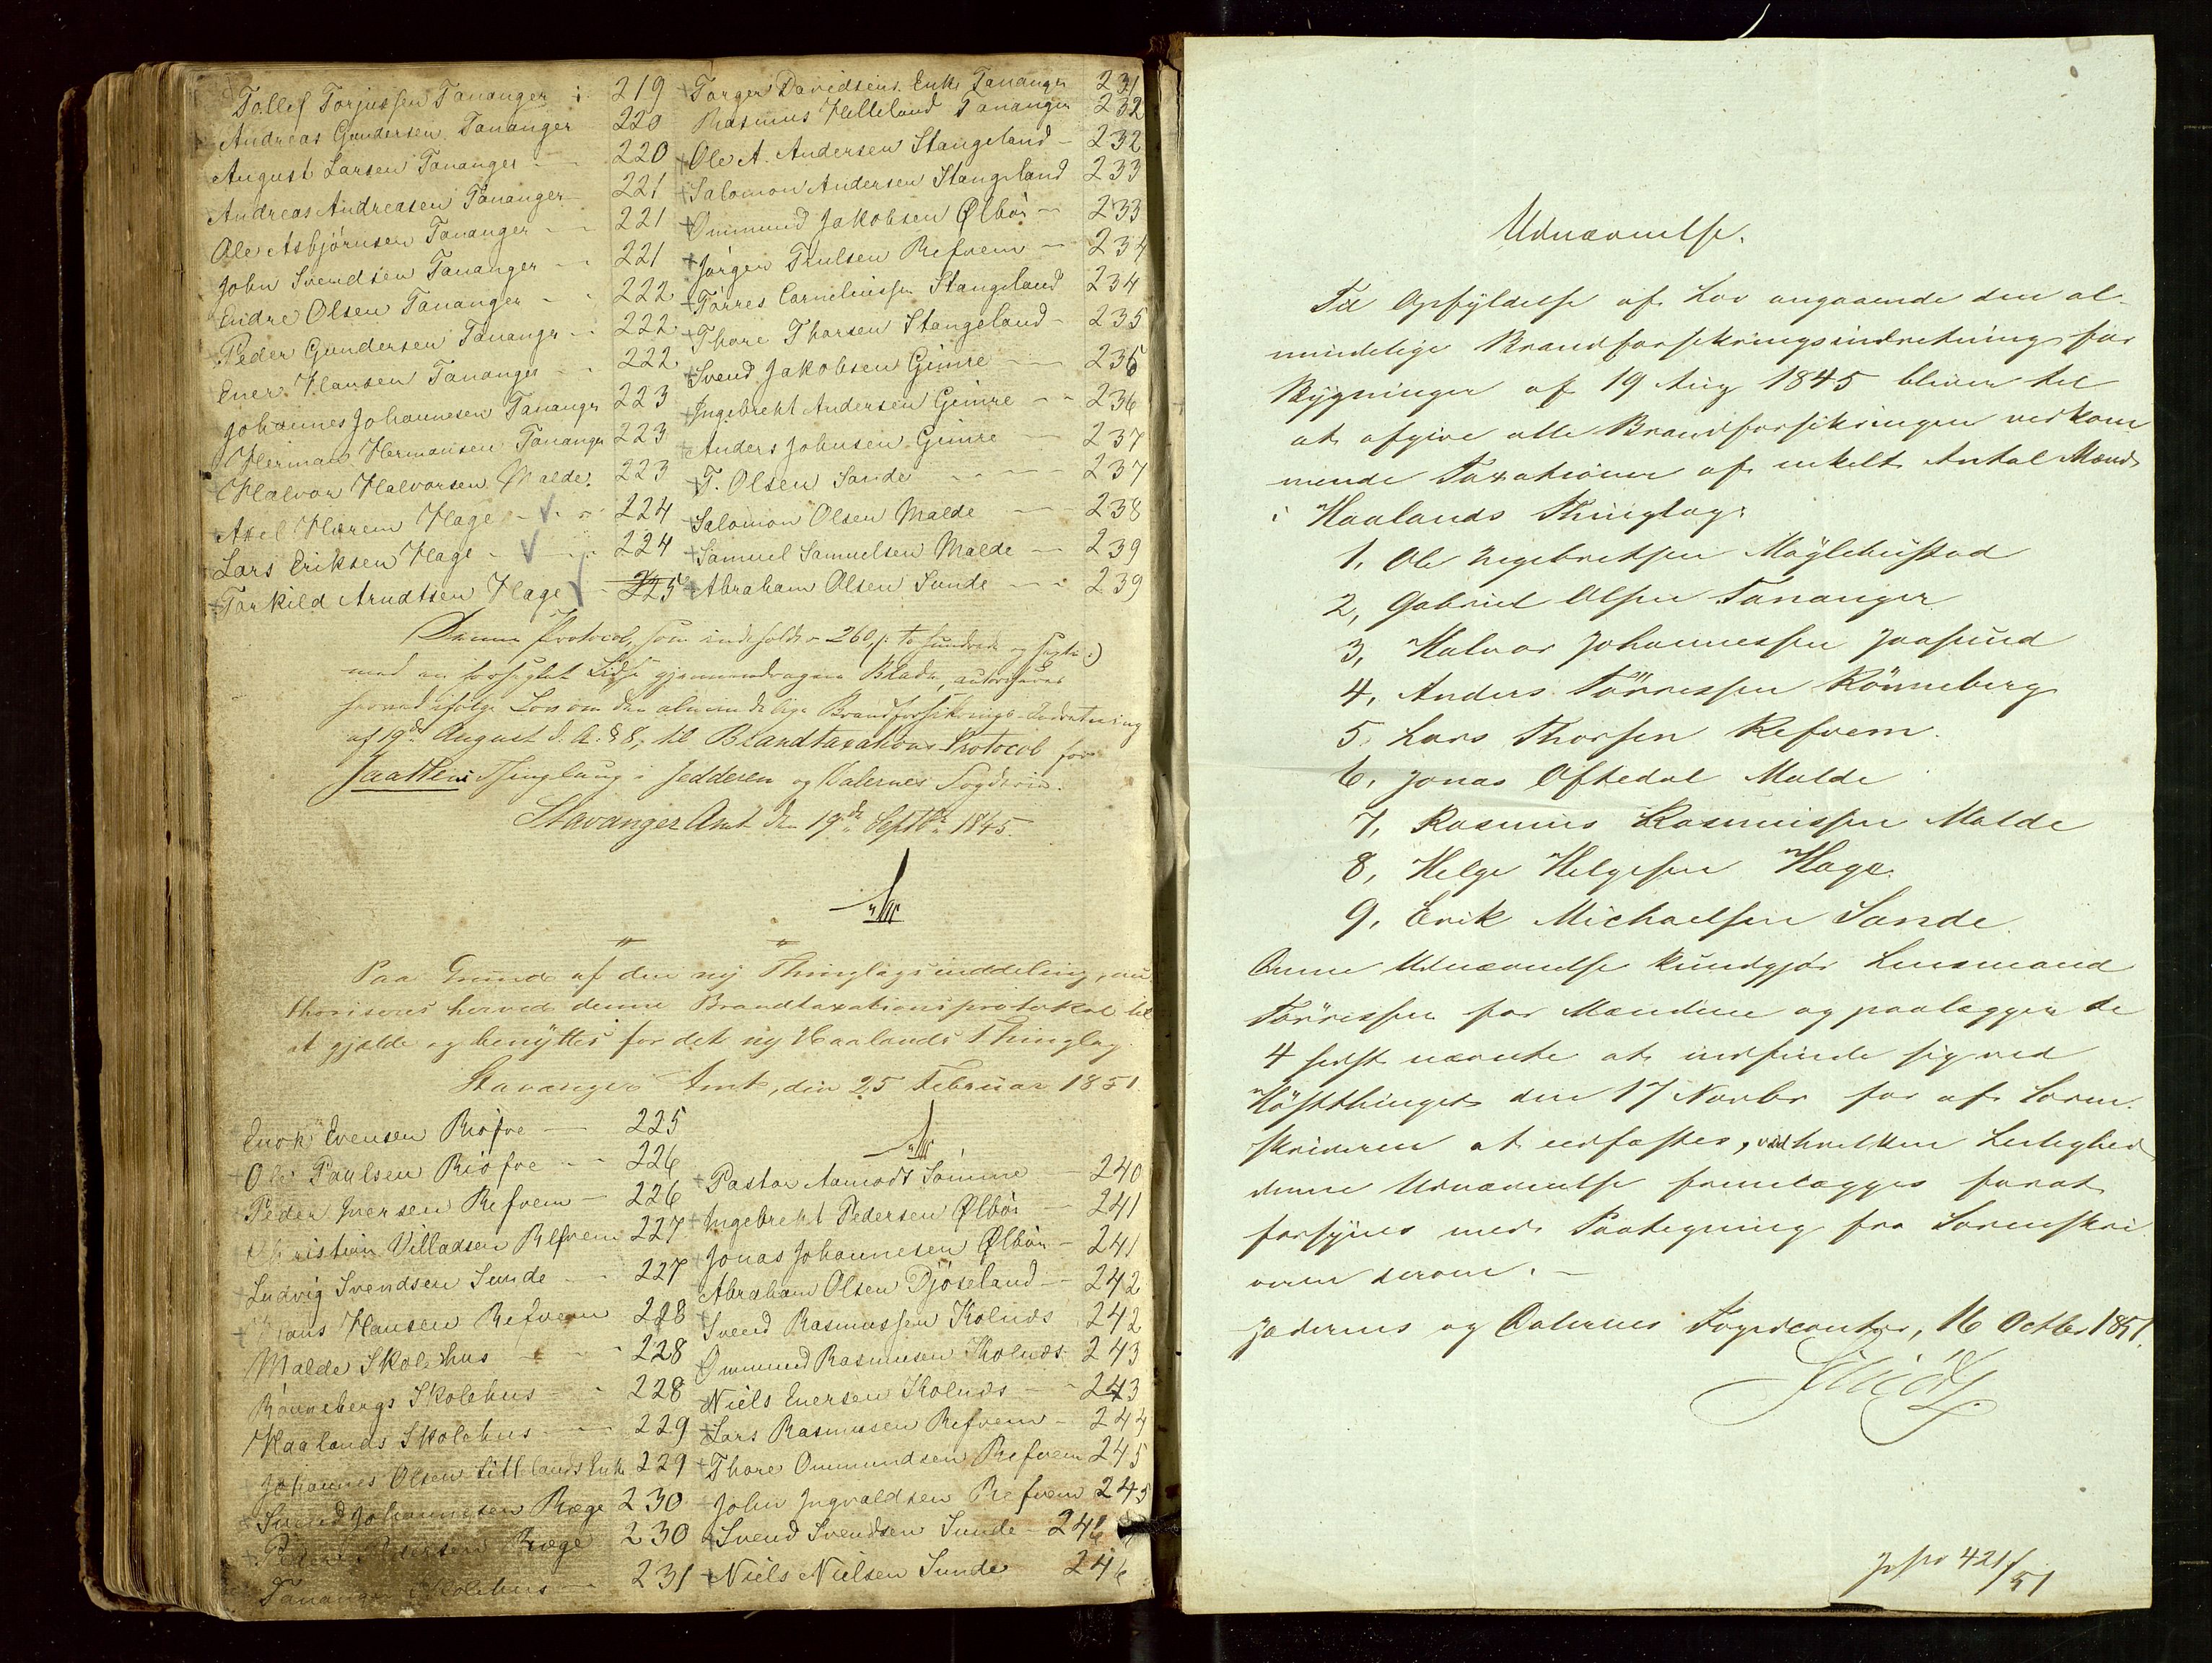 Tollef Torjussen Tananger 219
Andreas Gundersen Tananger 220
August Larsen Tananger 220
Andreas Andreasen Tananger 221
Ole Asbjörnsen Tananger 221
John Svendsen Tananger 221
Endre Olsen Tananger 222
Peder Gundersen Tananger 222
Ener Hansen Tananger 222
Johannes Johannesen Tananger 223
Herman Hermansen Tananger 223
Halvor Halvorsen Malde 223
Axel Hærem Hage 224
Lars Eriksen Hage 224
Torkild Arndtsen Hage 225
Torger Davidsens Enke Tananger 231
Rasmus Helleland Tananger 232
Ole A. Andersen Stangeland 232
Salomon Andersen Stangeland 233
Ommund Jakobsen Ølbör 233
Jörgen Trulsen Refvem 234
Törres Corneliussen Stangeland 234
Thore Thorsen Stangeland 235
Svend Jakobsen Gimre 236
Ingebreht Andersen Gimre 236
Anders Johnsen Gimre 237
T. Olsen Sande 237
Salomon Olsen Malde 238
Samuel Samuelsen Malde 239
Abraham Olsen Sunde 239
Denne Protocol, som indeholder 260 /: to hundrede og sexti :/
med en forseglet Lidse gjennemdragne Blade, autoriseres
herved ifölge Lov om den almindelige Brandforsikrings-Indretning
af 19de August d. A. § 8, til Brandtaxations-Protocol for
Jaattens Thinglaug i Jedderen og Dalernes Fogderie.
Stavanger Amt den 19de Septbr 1845.
Paa Grund af den ny Thinglagsinddeling, au-
thoriseres herved denne Brandtaxationsprotokol til
at gjælde og benyttes for det ny Haalands Thinglag.
Stavanger Amt, den 25 Februar 1851.
Enok Evensen Riöfve 225
Ole Paulsen Riöfve 226
Peder Iversen Refvem 226
Christian Villadsen Refvem 227
Ludvig Svendsen Sunde 227
Hans Hansen Refvem 228
Malde Skolehus 228
Rönnebergs Skolehus 228
Haalands Skolehus 229
Johannes Olsen Litlelands Enke 229
Svend Johannesen Ræge 230
Peder Pedersen Ræge 230
Tananger Skolehus 231
Pastor Aamodt Sömme 240
Ingebreht Pedersen Ølbör 241
Jonas Johannesen Ølbör 241
Abraham Olsen Djöseland 242
Svend Rasmussen Kolnes 242
Ommund Rasmusen Kolnes 243
Niels Enersen Kolnes 243
Lars Rasmusen Refvem 244
Thore Ommundsen Refvem 245
John Ingvaldsen Refvem 245
Svend Svendsen Sunde 246
Niels Nielsen Sunde 246
Udnævnelse.
Til Opfyldelse af Lov angaaende den al-
mindelige Brandforsikringsindretning for
Bygninger af 19 Aug 1845 bliver til
at afgive alle Brandforsikringen vedkom
mende Taxationer af enkelt Antal Mænd
i Haalands Thinglag:
1, Ole Ingebretsen Möglehustad
2, Gabriel Olsen Tananger
3, Halvor Johannessen Jaasund
4, Anders Törressen Rönneberg
5, Lars Thorsen Refvem.
6, Jonas Oftedal Malde
7, Rasmus Rasmussen Malde
8, Helge Helgesen Hage.
9, Erik Michaelsen Sande.
Denne Udnævnelse kundgjör Lensmand
Törressen for Mændene og paalægger de
4 sidst nævnte at indfinde sig ved
Höstthinget den 17 Novbr for af Soren-
skriveren at edfæstes, ved hvilken Leilighed
denne Udnævnelse fremlægges forat
forsynes med Paategning fra Sorenskri
veren derom. –
Jæderens og Dalernes Fogedcontor, 16 Octbr 1851.
421/51